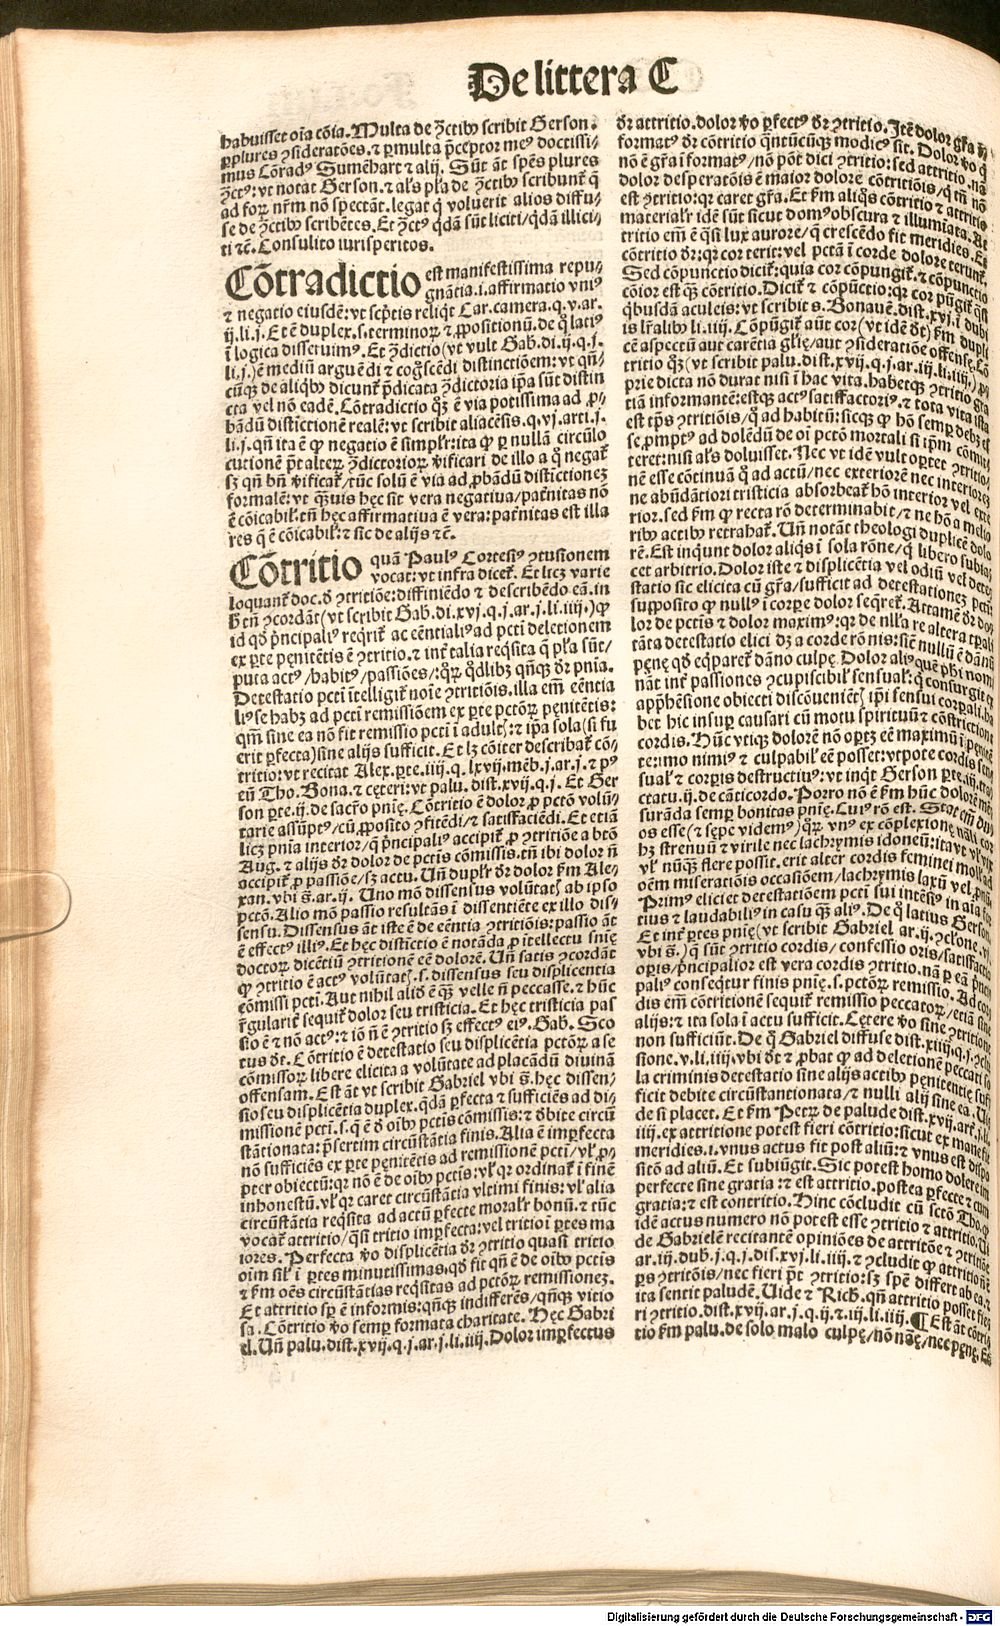 De littera C
habuisset oĩa cõia. Multa de ꝯctibꝰ scribit Gerson.
ꝑ plures ꝯsideratões. ⁊ ꝑmulta p̃ceptor meꝰ doctissi-
mus Cõradꝰ Sumẽhart ⁊ alij. Sũt ãt spẽs plures
ꝯctꝰ: vt notat Gerson. ⁊ al̃s pl̃a de ꝯctibꝰ scribunt̃ q̃
ad foꝝ nr̃m nõ spectãt. legat q̃ voluerit alios diffu-
se de ꝯctibꝰ scribẽtes. Et ꝯctꝰ q̃dã sũt liciti/ q̃dã illici-
ti ⁊c̃. Consulito iurisperitos.
Cõtradictio est manifestissima repu-
gnãtia .i. affirmatio vniꝰ
⁊ negatio eiusdẽ: vt scp̃tis reliq̃t Car. camera. q. v. ar.
ij. li. j. Et ẽ duplex .s. terminoꝝ ⁊ ꝓpositionũ. de q̃ latiꝰ
ĩ logica disseruimꝰ. Et ꝯdictio (vt vult Gab. di. ij. q. j.
li. j.) ẽ mediũ arguẽdi ⁊ cog̃scẽdi distinctiõem: vt qñ-
cũqꝫ de aliqbꝰ dicunt̃ p̃dicata ꝯdictoria ip̃a sũt distin
cta vel nõ eadẽ. Cõtradictio q̃ꝫ ẽ via potissima ad ꝓ-
bãdũ distictionẽ realẽ: vt scribit aliacẽsis. q. vj. arti. j.
li. j. qñ ita ẽ ꝙ negatio ẽ simpl̃r: ita ꝙ ꝑ nullã circũlo
cutionẽ p̃t alteꝝ ꝯdictorioꝝ ṽificari de illo a q̃ negat̃
sꝫ qñ bñ ṽificat̃/ tũc solũ ẽ via ad ꝓbãdũ distictionez
formalẽ: vt q̃uis hęc sit vera negatiua/ pat̃nitas nõ
ẽ cõicabil̃. tñ hęc affirmatiua ẽ vera: pat̃nitas est illa
res q̃ ẽ cõicabil̃: ⁊ sic de alijs ⁊c̃.
Cõtritio quã Paulꝰ Cortesiꝰ ꝯtusionem
vocat: vt infra dicet̃. Et licꝫ varie
loquant̃ doc. d̃ ꝯtritiõe: diffiniẽdo ⁊ describẽdo eã. in
h̃ tñ ꝯcordãt (vt scribit Gab. di. xvj. q. j. ar. j. li. iiij.) ꝙ
id qd̃ p̃ncipaliꝰ req̃rit̃ ac eẽntialiꝰ ad pctĩ deletionem
ex ꝑte pęnitẽtis ẽ ꝯtritio. ⁊ int̃ talia reqsita q̃ pl̃a sũt/
puta actꝰ/ habitꝰ/ passiões/: q̃ꝝ q̃dlibꝫ qñqꝫ dr̃ pnĩa.
Detestatio pctĩ ĩtelligit̃ noĩe ꝯtritiõis. illa em̃ eẽntia
liꝰ se habꝫ ad pctĩ remissiõem ex ꝑte pctõꝝ pęnitẽtis:
qm̃ sine ea nõ fit remissio pctĩ ĩ adultꝭ: ⁊ ip̃a sola (si fu
erit ꝑfecta) sine alijs sufficit. Et lꝫ cõiter describat̃ cõ-
tritio: vt recitat Alex. ꝑte. iiij. q. lxvij. mẽb. j. ar. j. ⁊ pꝰ
eũ Tho. Bona. ⁊ cęteri: vt palu. dist. xvij. q. j. Et Ger
son ꝑte. ij. de sacr̃o pnię. Cõtritio ẽ dolor ꝓ pctõ volũ-
tarie assũptꝰ/ cũ ꝓposito ꝯfitẽdi/ ⁊ satisfaciẽdi. Et etiã
licꝫ pnĩa interior/ q̃ p̃ncipaliꝰ accipit̃ ꝓ ꝯtritiõe a btõ
Aug. ⁊ alijs dr̃ dolor de pctis cõmissis. tñ ibi dolor ñ
accipit̃ ꝓ passiõe/ sꝫ actu. Uñ dupl̃r dr̃ dolor f̃m Ale-
xan. vbi s̃. ar. ij. Uno mõ dissensus volũtatꝭ ab ipso
pctõ. Alio mõ passio resultãs ĩ dissentiẽte ex illo dis-
sensu. Dissensus ãt iste ẽ de eẽntia ꝯtritiõis: passio ãt
ẽ effectꝰ illiꝰ. Et hęc distictio ẽ notãda ꝓ ĩtellectu snię
doctoꝝ dicẽtiũ ꝯtritionẽ eẽ dolorẽ. Uñ satis ꝯcordãt
ꝙ ꝯtritio ẽ actꝰ volũtatꝭ .s. dissensus seu displicentia
cõmissi pctĩ. Aut nihil alid̃ ẽ q̃ꝫ velle ñ peccasse. ⁊ hũc
r̃gularit̃ sequit̃ dolor seu tristicia. Et hęc tristicia pas
sio ẽ ⁊ nõ actꝰ: ⁊ iõ ñ ẽ ꝯtritio sꝫ effectꝰ eiꝰ. Gab. Sco
tus dt̃. Cõtritio ẽ detestatio seu displicẽtia pctõꝝ a se
cõmissoꝝ libere elicita a volũtate ad placãdũ diuinã
offensam. Est ãt vt scribit Gabriel vbi s̃. hęc dissen-
sio seu displicẽtia duplex. q̃dã ꝑfecta ⁊ sufficiẽs ad di-
missionẽ pctĩ .s. q̃ ẽ d̃ oĩbꝰ pctis cõmissis: ⁊ d̃bite circũ
stãtionata: p̃sertim circũstãtia finis. Alia ẽ imꝑfecta
nõ sufficiẽs ex ꝑte pęnitẽtis ad remissionẽ pctĩ/ vl̃ ꝓ-
pter obiectũ: qr nõ ẽ de oĩbꝰ pctis: vl̃ qr ordinat̃ ĩ finẽ
inhonestũ. vl̃ qr caret circũstãtia vltimi finis: vl̃ alia
circũstãtia reqsita ad actũ ꝑfecte moral̃r bonũ. ⁊ tũc
vocat̃ attritio/ q̃si tritio imꝑfecta: vel tritio ĩ ꝑtes ma
iores. Perfecta ṽo displicẽtia dr̃ ꝯtritio quasi tritio
oĩm sil̃ ĩ ꝑtes minutissimas. qd̃ fit qñ ẽ de oĩbꝰ pctis
⁊ f̃m oẽs circũstãtias reqsitas ad pctõꝝ remissionez.
Et attritio sꝑ ẽ informis: qñqꝫ indifferẽs/ qñqꝫ vitio
sa. Cõtritio ṽo semꝑ formata charitate. Hęc Gabri
el. Uñ palu. dist. xvij. q. j. ar. j. li. iiij. Dolor imꝑfectus
dr̃ attritio. dolor ṽo ꝑfectꝰ dr̃ ꝯtritio. Itẽ dolor gr̃a ñ
formatꝰ dr̃ cõtritio qñtũcũqꝫ modicꝰ sit. Dolor ṽo q̃
nõ ẽ gr̃a ĩformatꝰ/ nõ põt dici ꝯtritio: sed attritio. nã
dolor desperatõis ẽ maior dolore cõtritiõis/ q tñ nõ
est ꝯtritio: qr caret gr̃a. Et f̃m aliq̃s cõtritio ⁊ attritio
material̃r idẽ sũt sicut domꝰ obscura ⁊ illumiata. At
tritio em̃ ẽ q̃si lux aurore/ q̃ crescẽdo fit meridies. Et
cõtritio dr̃: qr cor terit: vel pctã ĩ corde dolore terunt̃.
Sed cõpunctio dicit̃: quia cor cõpungit̃ ⁊ cõpunctio
cõior est q̃ꝫ cõtritio. Dicit̃ ⁊ cõpũctio: qr cor pũgit̃ q̃si
q̃busdã aculeis: vt scribit s. Bonauẽ. dist. xvj. ĩ dubi
is lr̃alibꝰ li. iiij. Cõpũgit̃ aũt cor (vt idẽ dt̃) f̃m dupli
cẽ aspectũ aut carẽtia gl̃ię/ aut ꝯsideratiõe offensę. Cõ
tritio q̃ꝫ (vt scribit palu. dist. xvij. q. j. ar. iij. li. iiij.) ꝓ-
prie dicta nõ durat nisi ĩ hac vita. habetqꝫ ꝯtritio gra
tiã informantẽ: estqꝫ actꝰ satisfactoriꝰ. ⁊ tota vita ista
est tp̃s ꝯtritiõis/ q̃ ad habitũ: sicqꝫ ꝙ hõ semꝑ debꝫ es
se ꝓmptꝰ ad dolẽdũ de oĩ pctõ mortali si ip̃m cõmit-
teret: nisi al̃s doluisset. Nec vt idẽ vult oꝑtet ꝯtritio-
nẽ esse cõtinuã q̃ ad actũ/ nec exteriorẽ nec interiorez
ne abũdãtiori tristicia absorbeat̃ hõ interior vel exte
rior. sed f̃m ꝙ recta rõ determinabit/ ⁊ ne hõ a melio
ribꝰ actibꝰ retrahat̃. Uñ notãt theologi duplicẽ dolo
rẽ. Est inqunt dolor aliq̃s ĩ sola rõne/ q̃ libero subia
cet arbitrio. Dolor iste ⁊ displicẽtia vel odiũ vel dete
statio sic elicita cũ gr̃a/ sufficit ad detestationez pctũ
supposito ꝙ nullꝰ ĩ corꝑe dolor seq̃ret̃. Attamẽ dr̃ do-
lor de pctis ⁊ dolor maximꝰ: qr de nll̃a re altera tꝑali
tãta detestatio elici dꝫ a corde rõnis: siẽ nullũ ẽ dãnũ
pęnę qd̃ eq̃paret̃ dãno culpę. Dolor aliꝰ quẽ ph̃i nomi
nãt int̃ passiones ꝯcupiscibil̃ sensual̃: q̃ consurgit ex
apph̃ẽsione obiecti discõueniẽtꝭ ip̃i sensui corꝑali. ha
bet hic insuꝑ causari cũ motu spirituũ ⁊ cõstrictione
cordis. Hũc vtiqꝫ dolorẽ nõ oꝑtꝫ eẽ maximũ ĩ pęnitẽ
te: imo nimiꝰ ⁊ culpabil̃ eẽ posset: vtpote cordis sen-
sual̃ ⁊ corꝑis destructiuꝰ: vt inqt Gerson ꝑte. iij. tra-
ctatu. ij. de cãticordo. Porro nõ ẽ f̃m hũc dolorẽ mẽ-
surãda semꝑ bonitas pnię. Cuiꝰ rõ est. Stat em̃ du-
os esse (⁊ sępe videmꝰ) q̃ꝝ vnꝰ ex cõplexione nãli cor
hꝫ strenuũ ⁊ virile nec lachrymis idoneũ: ita vt vix
vl̃ nũq̃ꝫ flere possit. erit alter cordis feminei mollꝰ ad
oẽm miseratiõis occasiõem/ lachrymis laxũ vel ꝓnũ.
Primꝰ eliciet detestatiõem pctĩ sui intẽsiꝰ in aĩa for
tius ⁊ laudabiliꝰ in casu q̃ꝫ aliꝰ. De q̃ latius Gerson.
Et int̃ ꝑtes pnię (vt scribit Gabriel ar. ij. ꝯclone. vj.
vbi s̃.) q̃ sũt ꝯtritio cordis/ confessio oris/ satisfactio
oꝑis/ p̃ncipalior est vera cordis ꝯtritio. nã ꝑ eã p̃nci
paliꝰ conseq̃tur finis pnię .s. pctõꝝ remissio. Ad cor-
dis em̃ cõtritionẽ sequit̃ remissio peccatoꝝ/ etiã sine
alijs: ⁊ ita sola ĩ actu sufficit. Cętere ṽo sine ꝯtritione
non sufficiũt. De q̃ Gabriel diffuse dist. xiiij. q. j. ꝯclu
sione. v. li. iiij. vbi dt̃ ⁊ ꝓbat ꝙ ad deletionẽ peccati so
la criminis detestatio sine alijs actibꝰ pęnitentię suf-
ficit debite circũstantionata/ ⁊ nulli alij sine ea. Ui
de si placet. Et f̃m Petꝝ de palude dist. xvij. art. j. li.
iiij. ex attritione potest fieri cõtritio: sicut ex mane fit
meridies. i. vnus actus fit post aliũ: ⁊ vnus est dispo
sitõ ad aliũ. Et subiũgit. Sic potest homo dolere im
perfecte sine gratia: ⁊ est attritio. postea ꝑfecte ⁊ cum
gratia: ⁊ est contritio. Hinc cõcludit cũ sctõ Tho. ꝙ
idẽ actus numero nõ potest esse ꝯtritio ⁊ attritio. Ui
de Gabrielẽ recitantẽ opiniões de attritõe ⁊ ꝯtritiõe
ar. iij. dub. j. q. j. dis. xvj. li. iiij. ⁊ ꝯcludit ꝙ attritio ñ ẽ
ꝑs ꝯtritõis/ nec fieri p̃t ꝯtritio: sꝫ spẽ differt ab ea. ⁊
ita sentit paludẽ. Uide ⁊ Rich. qñ attritio posset fie-
ri ꝯtritio. dist. xvij. ar. j. q. ij. ⁊. iij. li. iiij. ¶ Est ãt cõtri-
tio f̃m palu. de solo malo culpę/ nõ nãę/ nec pęnę. Et
Digitalisierung gefördert durch die Deutsche Forschungsgemeinschaft - DFG